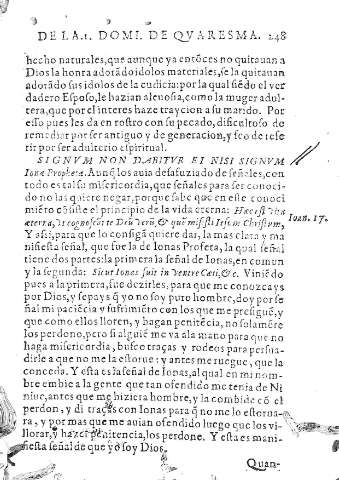 DE LA.1. DOMI. DE QVARESMA. 248
hecho naturales, que aunque ya entõces no quitauan a
Dios la honra adorãdo idolos materiales, se la quitauan
adorãdo sus idolos de la cudicia: por la qual siẽdo el ver
dadero Esposo, le hazian aleuosia, como la muger adul-
tera, que por el interes haze traycion a su marido. Por
esto pues les da en rostro con su pecado, dificultoso de
remediar por ser antiguo y de generacion, y feo de refe
rir por ser adulterio espiritual.
SIGNVM NON DABITVR EI NISI SIGNVM
Ionæ Prophetæ. Aunq̃ los auia desafuziado de señales, con
todo es tal su misericordia, que señales para ser conoci-
do no las quiere negar, porque sabe que en este conoci
miẽto cõsiste el principio de la vida eterna: Hæc est vita
æterna, vt cognoscãt te Deũ verũ, & quẽ misisti Iesum Christum,
Ioan. 17.
Y assi, para que lo consigã quiere dar, la mas clara y ma
nifiesta señal, que fue la de Ionas Profeta, la qual señal
tiene dos partes: la primera la señal de Ionas, en comun
y la segunda: Sicut Ionas fuit in ventre Ceti, &c. Viniẽdo
pues a la primera, fue dezirles, para que me conozcays
por Dios, y sepays q̃ yo no soy puro hombre, doy por se
ñal mi paciẽcia y sufrimiẽto con los que me persiguẽ, y
que como ellos lloren, y hagan penitẽcia, no solamẽte
los perdono, pero si alguiẽ me va ala mano para que no
haga misericordia, busco traças y rodeos para persua-
dirle a que no me la estorue: y antes me ruegue, que la
conceda. Y esta es la señal de Ionas, al qual en mi nom-
bre embie a la gente que tan ofendido me tenia de Ni
niue, antes que me hiziera hombre, y la combide cõ el
perdon, y di traças con Ionas para q̃ no me lo estorua-
ra, y por mas que me auian ofendido luego que los vi
llorar, y hazer penitencia, los perdone. Y esta es mani-
fiesta señal de que yo soy Dios.
Quan-